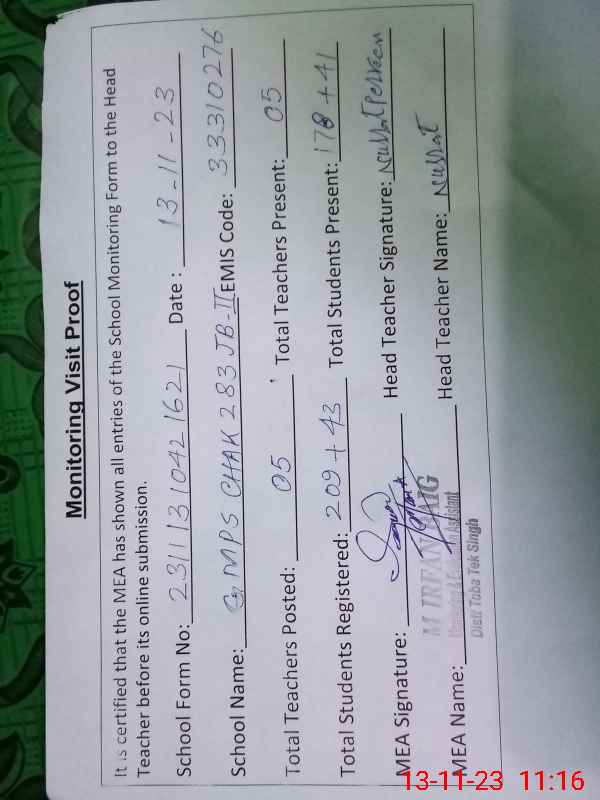 Monitoring Visit Proof
It is certified that the MEA has shown all entries of the School Monitoring Form to the Head
Teacher before its online submission.
School Form No: 231113 1042 1621 Date : 13-11-23
School Name: GMPS CHAK 283 JB-II EMIS Code: 33310276
Total Teachers Posted: 05 Total Teachers Present: 05
Total Students Registered: 209+43 Total Students Present: 178+41
MEA Signature: Head Teacher Signature: Nusrat Perveen
MEA Name: Head Teacher Name: Nusrat
M IRFAN BAIG
Monitoring & Evaluation Assistant
Distt Toba Tek Singh
13-11-23 11:16